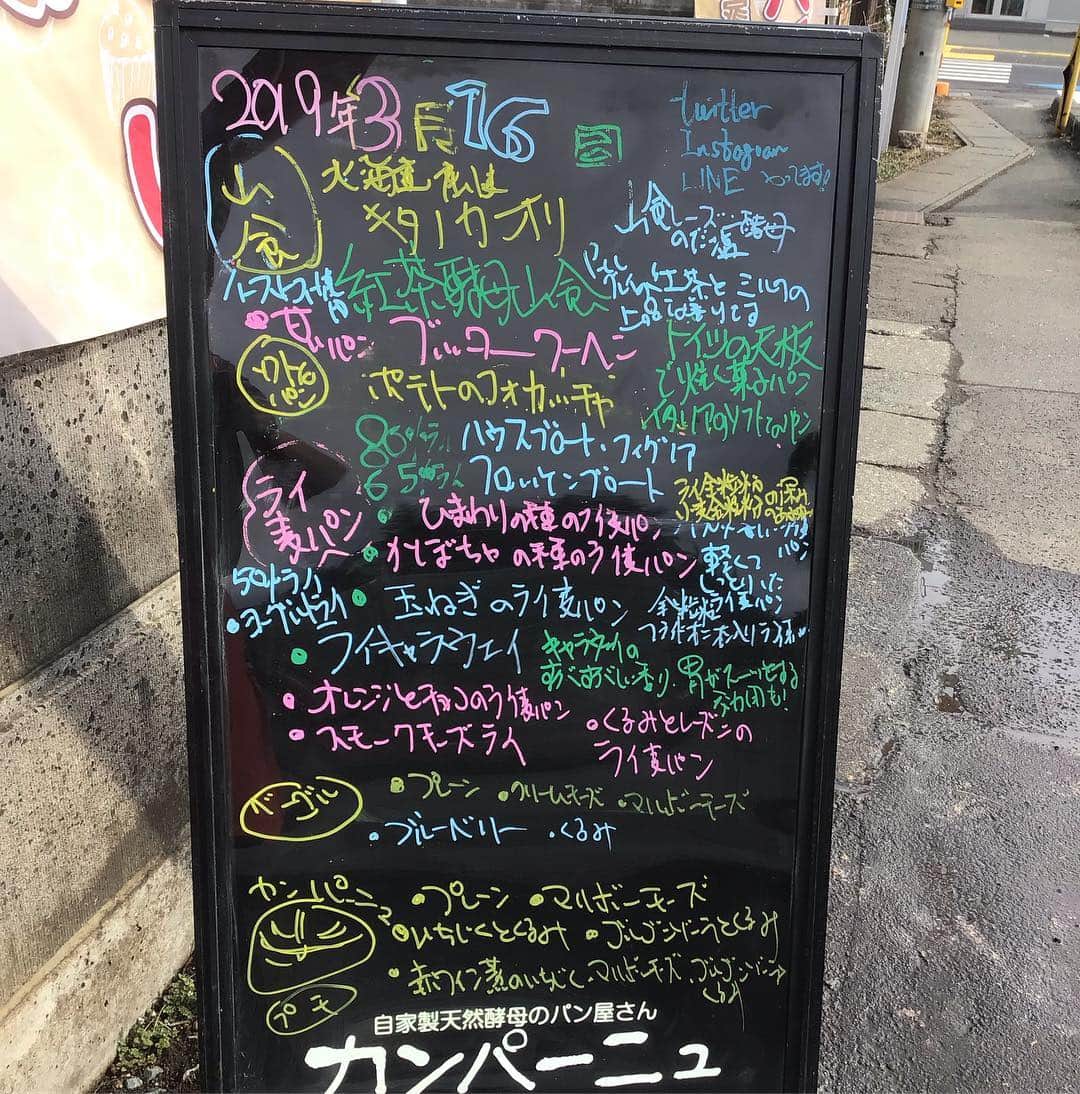 2019年3月16日
twitter
Instagram
LINE やってます!
山食
北海道
キターカオリ
山食レーズン酵母
紅茶酵母山食
紅茶とミルクの
甘いパン
ブッコーワーヘン
ドイツの天板
で焼く菓子パン
ソフトなパン
ポテトのフォカッチャ
イタリアのソフトなパン
ハウスブロート・フィグリア
フロッケンブロート
ライ麦パン
ひまわりの種のライ麦パン
かぼちゃの種のライ麦パン
軽くて
しっとりした
全粒粉ライ麦パン
50%ライ
ヨーグルトライ
玉ねぎのライ麦パン
フライドオニオン入りライ麦
ライキャラウェイ
キャラウェイの
すがすがしい香り
胃がスーッとする
オレンジとチョコのライ麦パン
くるみとレーズンの
ライ麦パン
スモークチーズライ
ベーグル
・プレーン ・クリームチーズ ・マルボーチーズ
・ブルーベリー ・くるみ
カンパーニュ
・プレーン ・マルボーチーズ
・いちじくとくるみ ・ゴルゴンゾーラとくるみ
プチ
・赤ワイン煮のいちじく、マルボーチーズ、ゴルゴンゾーラ
くるみ
自家製天然酵母のパン屋さん
カンパーニュ